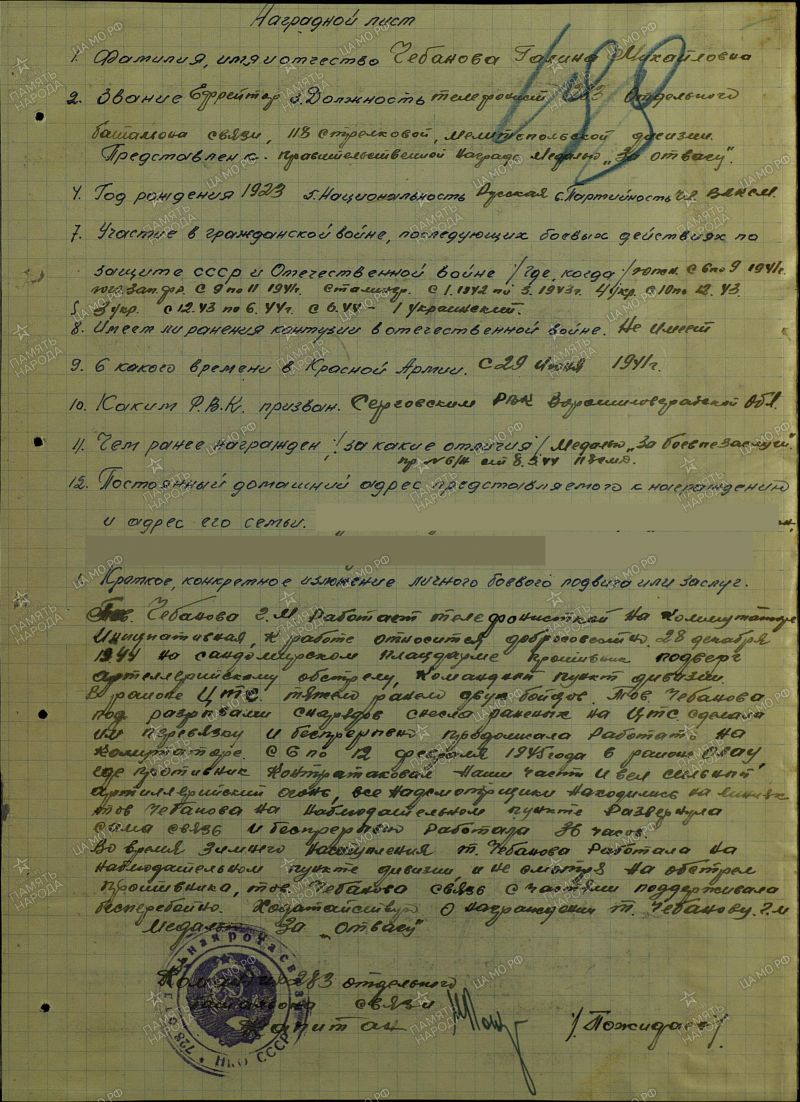 Наградной лист
1. Фамилия, имя и отчество Чебанова Галина Михайловна
2. Звание Ефрейтор 3. Должность телефонист 283 Отдельного
батальона связи, 118 Стрелковой, Мелитопольской дивизии.
Представлен к. правительственной награде Медалью „За отвагу".
4. Год рождения 1923 5. Национальность Русская 6. Партийность чл ВЛКСМ
7. Участие в гражданской войне, последующих боевых действиях по
защите СССР и Отечественной войне /где, когда/ южн. с 6 по 9 1941г.
юго. зап. фр. с 9 по 11 1941г. Сталингр. с 1.1942 по 3.1943г. 4 укр. с 10 по 12.43
3 укр. с 12.43 по 6.44г. с 6.44 - 1 украинский.
8. Имеет ли ранения контузии в отечественной войне. Не имеет
9. С какого времени в Красной Армии. с 29 Июня 1941г.
10. Каким Р.В.К. призван. Серговским РВК Ворошиловградской обл
11. Чем ранее награжден, /за какие отличия/ Медалью „За боевые заслуги".
пр № б/н от 8.3.44
12. Постоянный домашний адрес представляемого к награждению
и адрес его семьи.
1. Краткое, конкретное изложение личного боевого подвига или заслуг.
Тов. Чебанова Г.М Работает телефонисткой на коммутаторе
Инициативная, к работе относится добросовестно. 28 декабря
1944 на сандомирском плацдарме противник подверг
артеллерийскому обстрелу, командный пункт дивизии.
В районе ЦТС тяжело ранело двух бойцов. Тов. Чебанова
под разрывами снарядов снесла раненых на ЦТС сделала
им перевязку и беспрерывно продолжала Работать на
коммутаторе. С 6 по 12 февраля 1945 года в районе Олау,
где противник контратаковал наши части и вел сильный
артиллерийский огонь, все надсмотрщики находились на линиях
тов Чебанова на наблюдательном пункте Развернула
сама связь и беспрерывно Работала 36 часов.
Во время зимнего наступления т. Чебанова Работала на
наблюдательном пункте дивизии, и не смотря на обстрел
противника, тов. Чебанова связь с частями поддерживала
бесперебойно. Ходатайствую о награждении т. Чебанову Г.М
Медалью За „отвагу"
Командир 283 отдельного
батальона связи
Капитан /Пожидаев/
НКО СССР
ПАМЯТЬ НАРОДА
ЦАМО.РФ